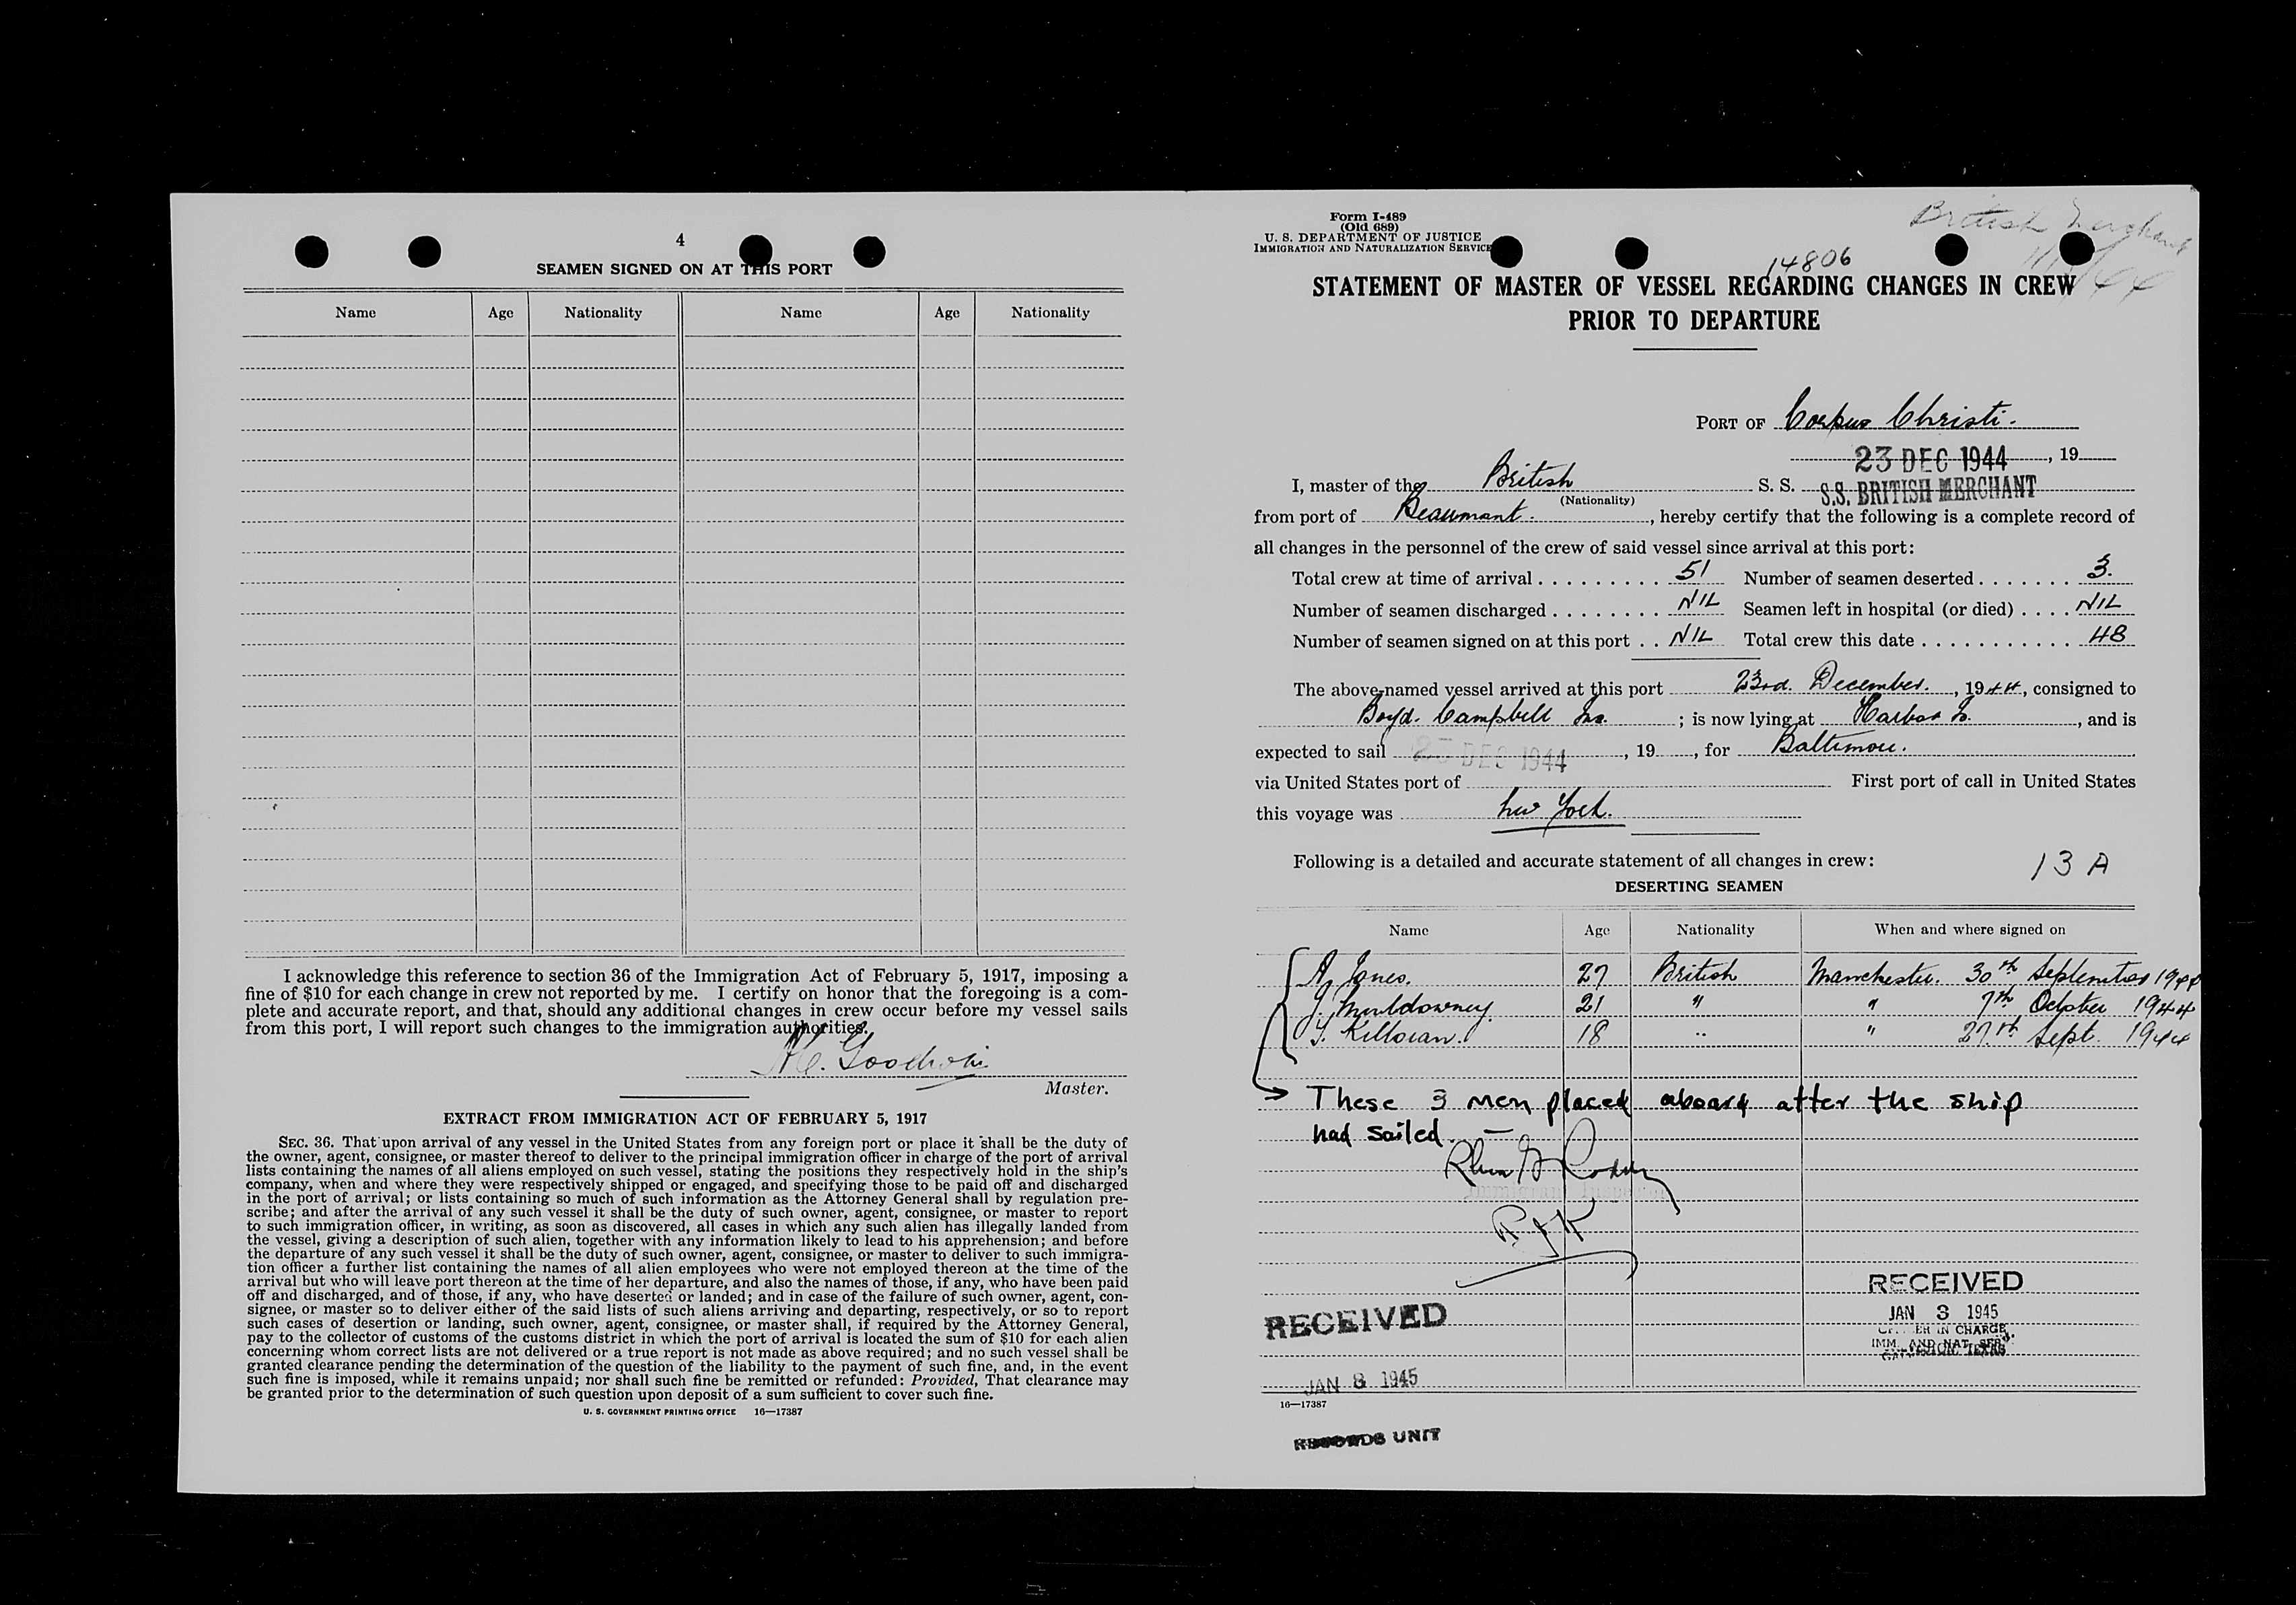 4
SEAMEN SIGNED ON AT THIS PORT
Name Age Nationality Name Age Nationality
I acknowledge this reference to section 36 of the Immigration Act of February 5, 1917, imposing a
fine of $10 for each change in crew not reported by me. I certify on honor that the foregoing is a com-
plete and accurate report, and that, should any additional changes in crew occur before my vessel sails
from this port, I will report such changes to the immigration authorities.
Goodwin
Master.
EXTRACT FROM IMMIGRATION ACT OF FEBRUARY 5, 1917
SEC. 36. That upon arrival of any vessel in the United States from any foreign port or place it shall be the duty of
the owner, agent, consignee, or master thereof to deliver to the principal immigration officer in charge of the port of arrival
lists containing the names of all aliens employed on such vessel, stating the positions they respectively hold in the ship's
company, when and where they were respectively shipped or engaged, and specifying those to be paid off and discharged
in the port of arrival; or lists containing so much of such information as the Attorney General shall by regulation pre-
scribe; and after the arrival of any such vessel it shall be the duty of such owner, agent, consignee, or master to report
to such immigration officer, in writing, as soon as discovered, all cases in which any such alien has illegally landed from
the vessel, giving a description of such alien, together with any information likely to lead to his apprehension; and before
the departure of any such vessel it shall be the duty of such owner, agent, consignee, or master to deliver to such immigra-
tion officer a further list containing the names of all alien employees who were not employed thereon at the time of the
arrival but who will leave port thereon at the time of her departure, and also the names of those, if any, who have been paid
off and discharged, and of those, if any, who have deserted or landed; and in case of the failure of such owner, agent, con-
signee, or master so to deliver either of the said lists of such aliens arriving and departing, respectively, or so to report
such cases of desertion or landing, such owner, agent, consignee, or master shall, if required by the Attorney General,
pay to the collector of customs of the customs district in which the port of arrival is located the sum of $10 for each alien
concerning whom correct lists are not delivered or a true report is not made as above required; and no such vessel shall be
granted clearance pending the determination of the question of the liability to the payment of such fine, and, in the event
such fine is imposed, while it remains unpaid; nor shall such fine be remitted or refunded: Provided, That clearance may
be granted prior to the determination of such question upon deposit of a sum sufficient to cover such fine.
U. S. GOVERNMENT PRINTING OFFICE 16—17387
Form I-489
(Old 689)
U. S. DEPARTMENT OF JUSTICE
IMMIGRATION AND NATURALIZATION SERVICE
British Merchant
14806
STATEMENT OF MASTER OF VESSEL REGARDING CHANGES IN CREW
PRIOR TO DEPARTURE
PORT OF Corpus Christi.
23 DEC 1944, 19
I, master of the British S. S. S.S. BRITISH MERCHANT
(Nationality)
from port of Beaumont., hereby certify that the following is a complete record of
all changes in the personnel of the crew of said vessel since arrival at this port:
Total crew at time of arrival . . . . . . . . . . 51 Number of seamen deserted . . . . . . . 3.
Number of seamen discharged . . . . . . . . NIL Seamen left in hospital (or died) . . . . NIL
Number of seamen signed on at this port . . NIL Total crew this date . . . . . . . . . . . 48
The above-named vessel arrived at this port 23rd. December., 1944, consigned to
Boyd. Campbell Inc. ; is now lying at Harbor I., and is
expected to sail DEC 1944, 19, for Baltimore.
via United States port of First port of call in United States
this voyage was New York.
Following is a detailed and accurate statement of all changes in crew:
13 A
DESERTING SEAMEN
Name Age Nationality When and where signed on
A. Jones. 27 British Manchester. 30th September 1944
J. Muldowney. 21 " " 7th October 1944
T. Killoran. 18 " " 27th Sept. 1944
These 3 men placed aboard after the ship
had sailed. —
Immigrant Inspector
RECEIVED
JAN 3 1945
OFFICER IN CHARGE
IMM. AND NAT. SER.
GALVESTON, TEXAS
RECEIVED
JAN 8 1945
16—17387
RECORDS UNIT